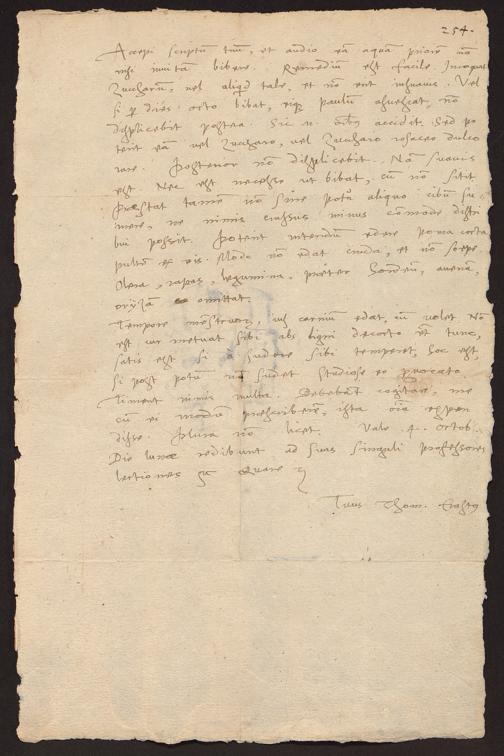 254.
Accepi scriptũ tuũ, et audio eã aquã priorẽ nõ
nisi invitã bibere. Remediũ est facile. Iniiciat
Zuccharũ, vel aliqd tale, et nõ erit insuavis. Vel
si p dies octo bibat, eiq paulũ assuescat, nõ
displicebit postea. Sic n. oibq accidit. Sed po
terit eã vel Zuccharo, vel Zuccharo rosaceo dulco
rare. Posterior nõ displicebit. Nã suavis
est. Nec est necesse ut bibat, cũ nõ sitit
Præstat tamen nõ sine potu aliquo cibũ su
mere, ne nimis crassus minus cõmode distri
bui possit. Poterit interdũ edere poma cocta
pultẽ ex iis. Modo nõ edat cruda, et nõ sæpe.
Olera, rapas, legumina, præter hordeũ, avenã,
oryzã omittat.
Tempore mẽstruorũ, carniũ edat, cũ volet Nõ
est cur metuat sibi abs ligni decocto et tunc,
satis est si a sudore sibi temperet, hoc est,
si post potũ nõ sudet studiose eo provocato
Timent nimis multa. Debebant cogitare, me
cũ ei modũ præscriberẽ, ista oĩa expen
disse. Plura nõ licet. Vale 4. octob.
Die lunæ redibunt ad suas singuli professores
lectiones Quare
Tuus Thom. Erastq